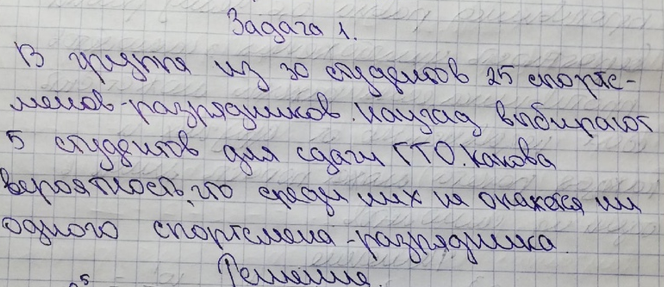 Задача 1.
В группе из 30 студентов 25 спортс-
менов-разрядников. Наугад выбирают
5 студентов для сдачи ГТО. Какова
вероятность, что среди них не окажется ни
одного спортсмена-разрядника.
Решение.